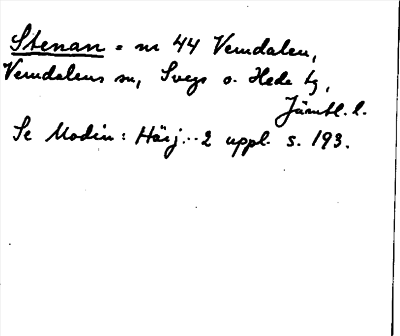 Stenan = nr 44 Vemdalen,
Vemdalens sn, Svegs o. Hede tg,
Jämtl. l.
Se Modin: Härj... 2 uppl. s. 193.